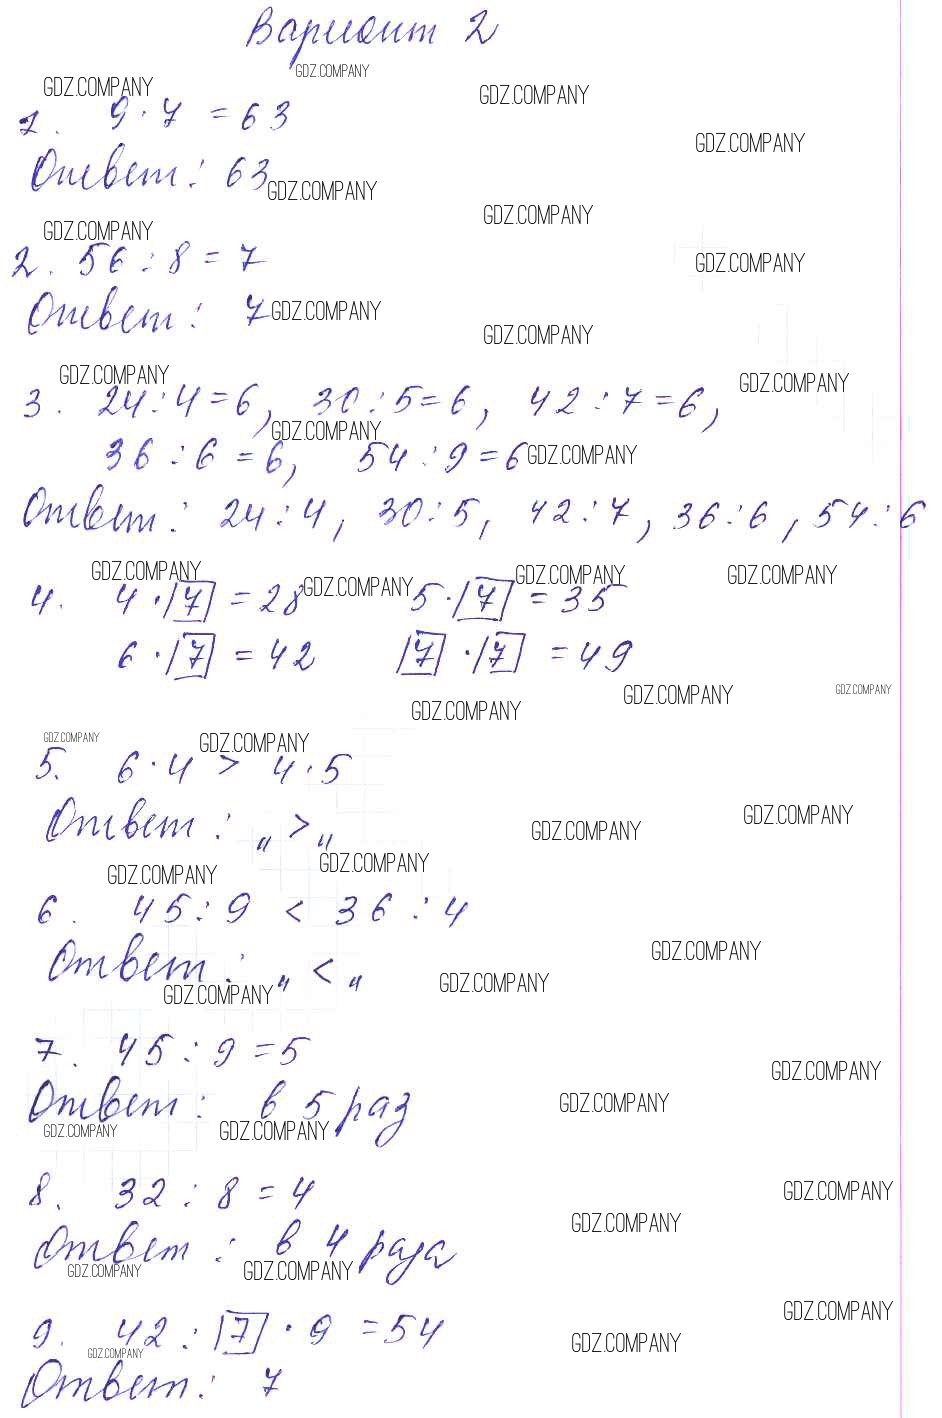 Вариант 2
GDZ.COMPANY
GDZ.COMPANY GDZ.COMPANY
1. 9·7 = 63
GDZ.COMPANY
Ответ: 63
GDZ.COMPANY
GDZ.COMPANY
GDZ.COMPANY
2. 56 : 8 = 7
GDZ.COMPANY
Ответ: 7
GDZ.COMPANY
GDZ.COMPANY
GDZ.COMPANY
GDZ.COMPANY
3. 24:4=6, 30:5=6, 42:7=6,
GDZ.COMPANY
36:6=6, 54:9=6
GDZ.COMPANY
Ответ: 24:4, 30:5, 42:7, 36:6, 54:6
GDZ.COMPANY GDZ.COMPANY GDZ.COMPANY GDZ.COMPANY
4. 4·|7| = 28 5·|7| = 35
6·|7| = 42 |7|·|7| = 49
GDZ.COMPANY GDZ.COMPANY GDZ.COMPANY
GDZ.COMPANY GDZ.COMPANY
5. 6·4 > 4·5
GDZ.COMPANY
Ответ: „ > „
GDZ.COMPANY
GDZ.COMPANY GDZ.COMPANY
6. 45:9 < 36:4
GDZ.COMPANY
Ответ: „ < „
GDZ.COMPANY GDZ.COMPANY
7. 45:9=5
GDZ.COMPANY
Ответ: в 5 раз
GDZ.COMPANY
GDZ.COMPANY GDZ.COMPANY
8. 32:8=4
GDZ.COMPANY
GDZ.COMPANY
Ответ: в 4 раза
GDZ.COMPANY GDZ.COMPANY
GDZ.COMPANY
9. 42:|7|·9 = 54
GDZ.COMPANY GDZ.COMPANY
Ответ: 7